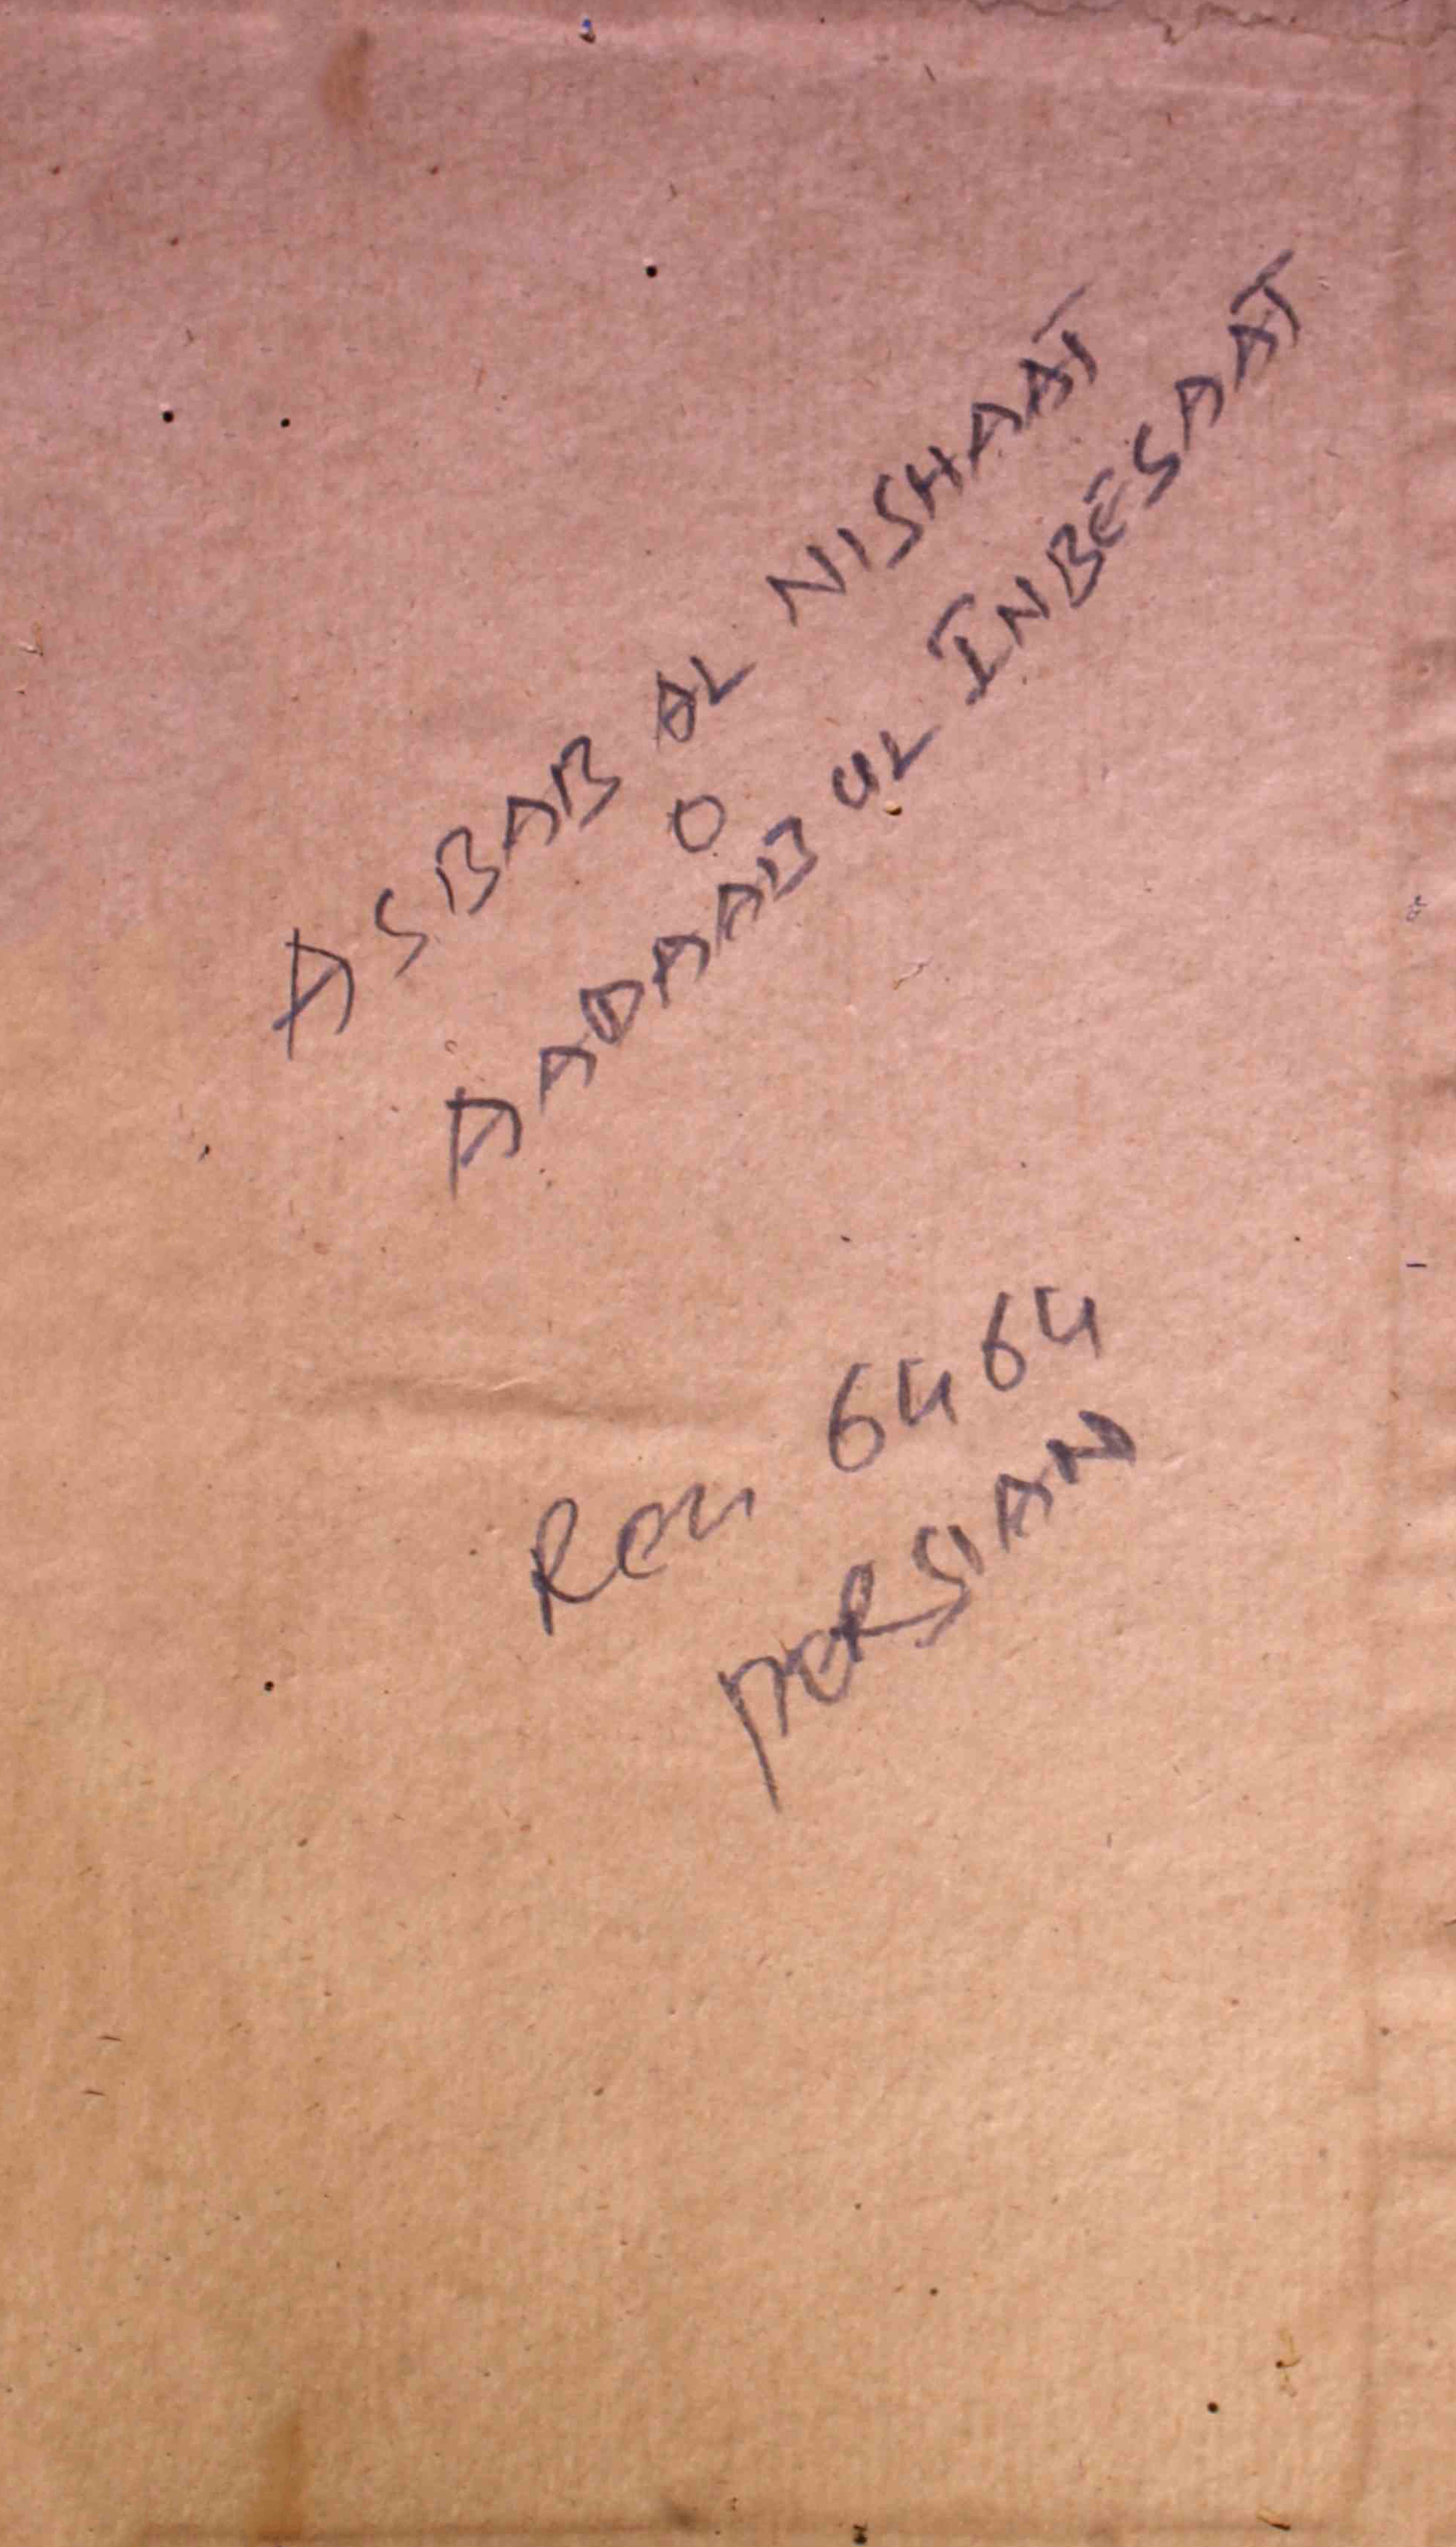 ASBAB AL NISHAAT
O
AADAAAB UL INBESAAT
6464
PERSIAN